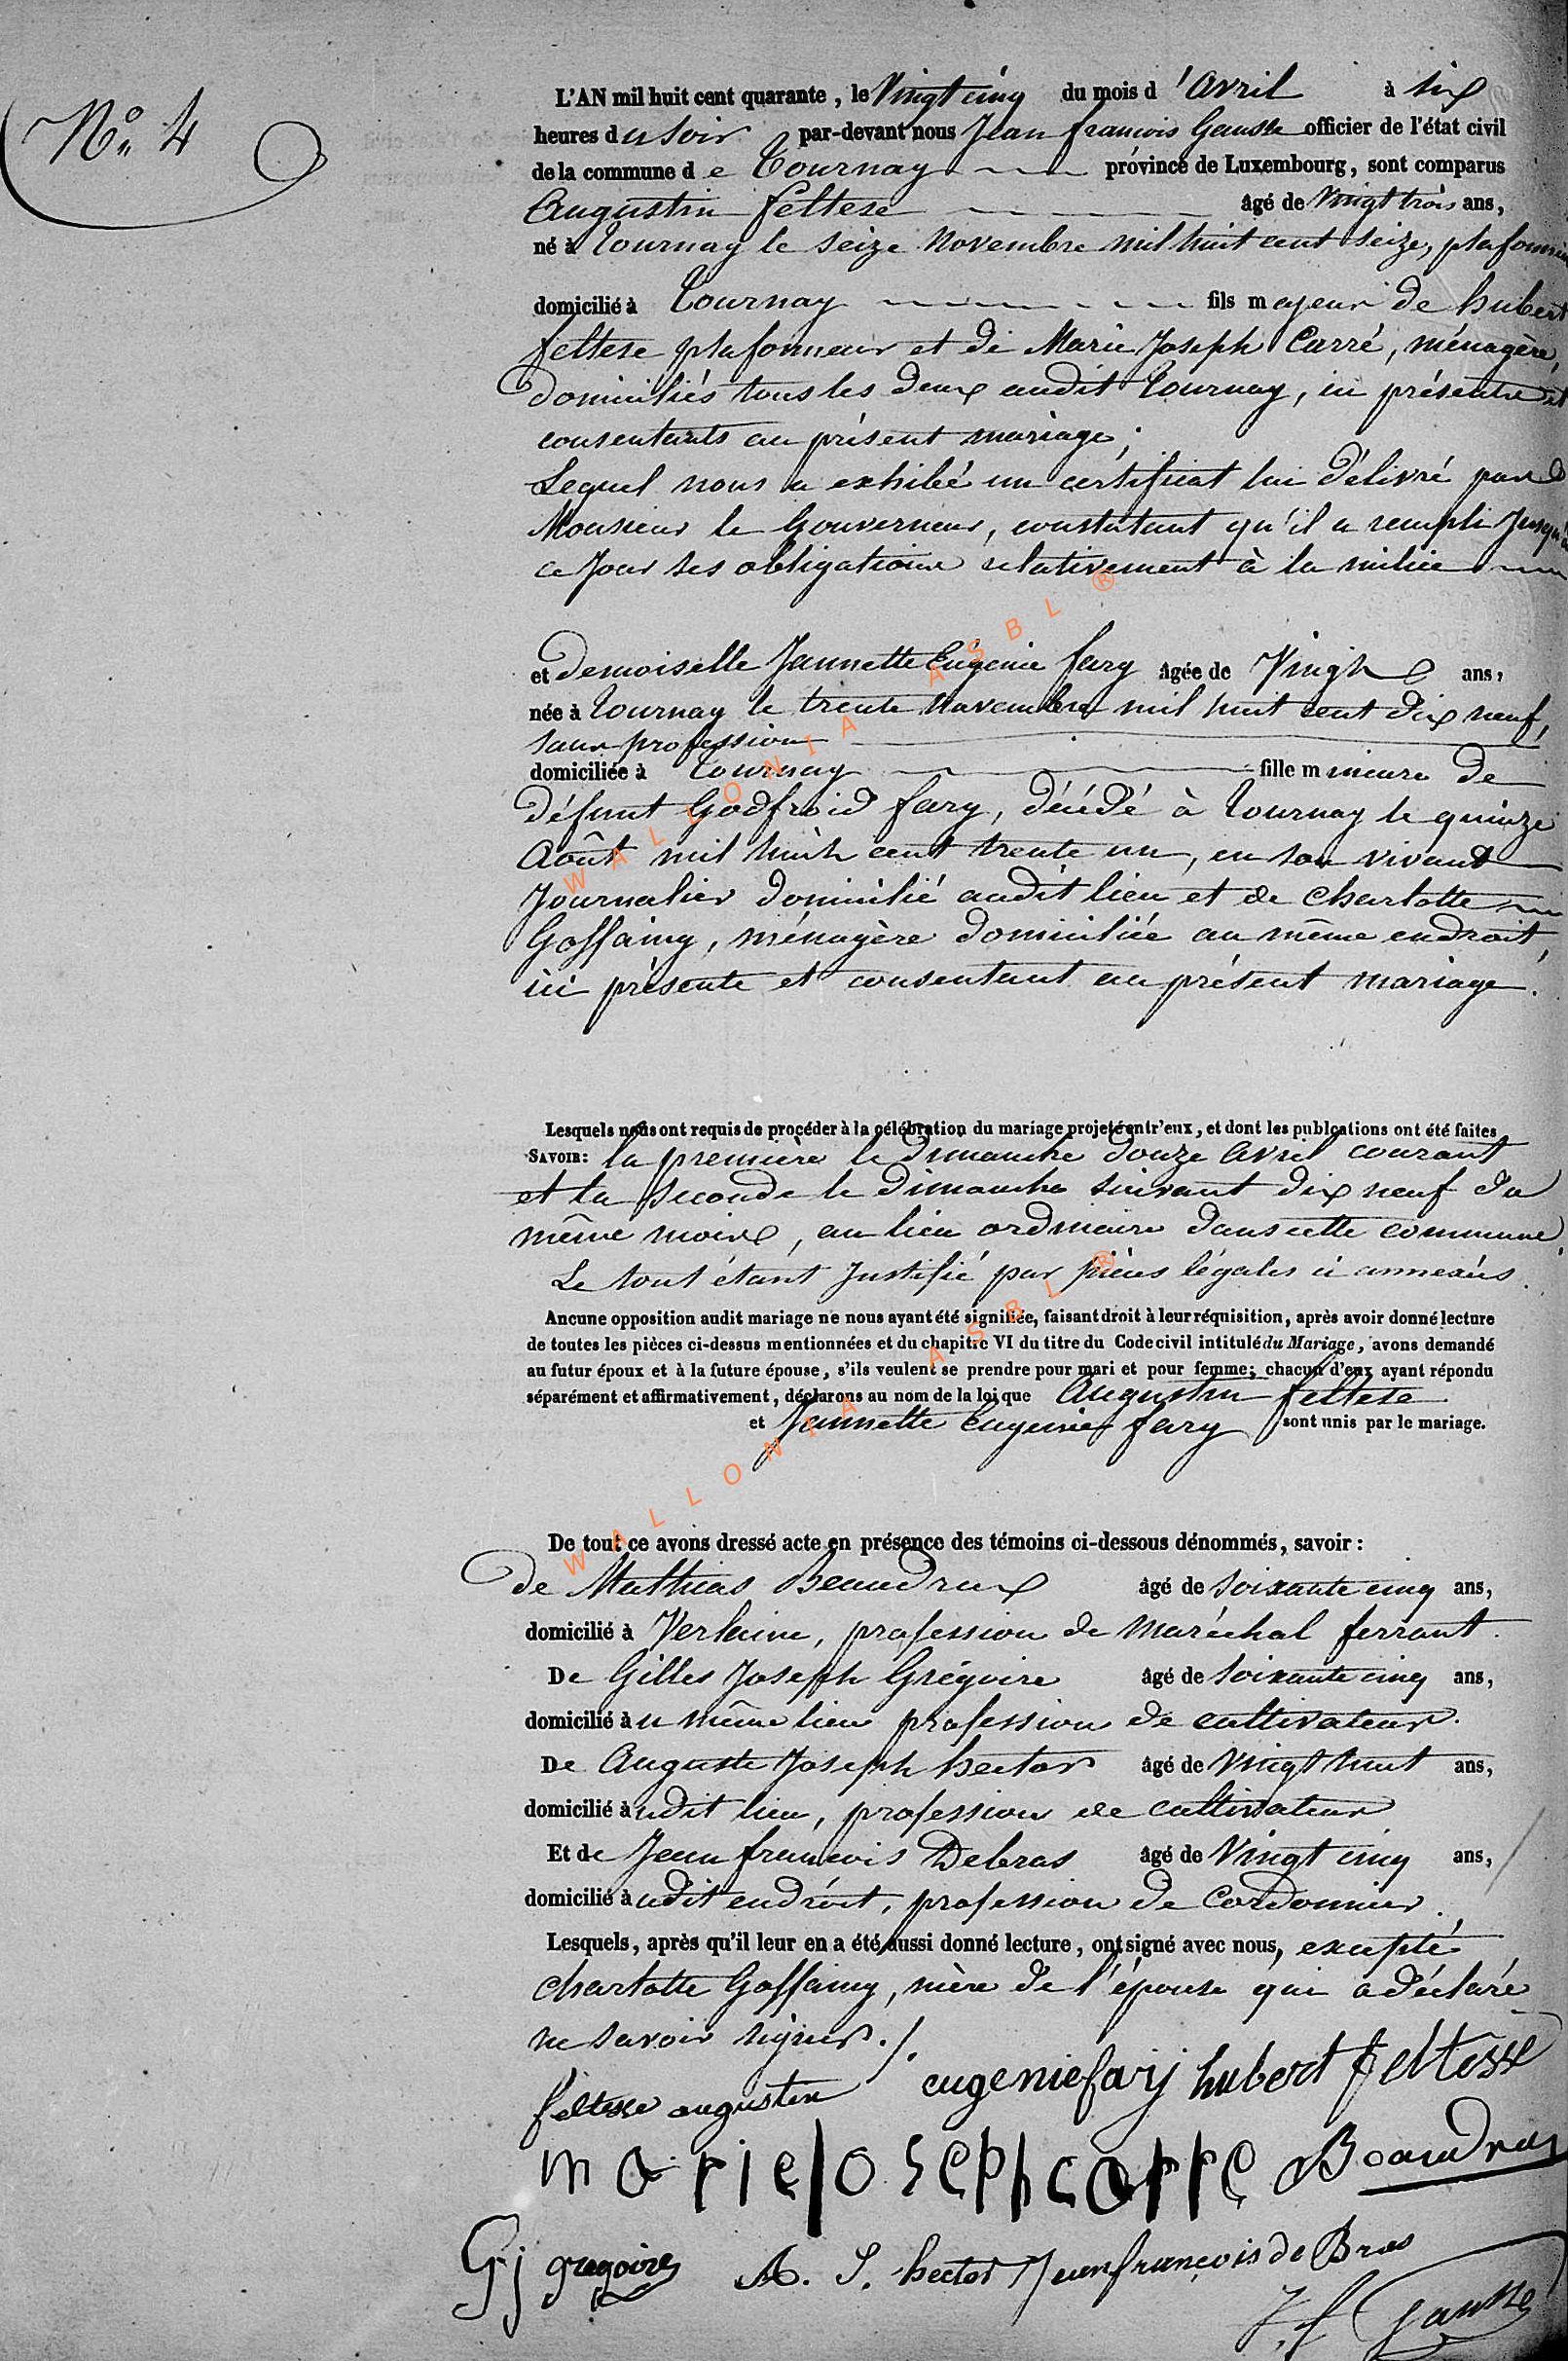 N° 4
L'AN mil huit cent quarante, le Vingt cinq du mois d'Avril à six
heures du soir par-devant nous Jean françois Gausse officier de l'état civil
de la commune de Tournay province de Luxembourg, sont comparus
Augustin feltese âgé de Vingt trois ans,
né à Tournay le seize Novembre mil huit cent seize, plafonneur
domicilié à Tournay fils majeur de hubert
feltese plafonneur et de Marie Joseph Carré, ménagère,
domiciliés tous les deux audit Tournay, ici présents et
consentants au présent mariage;
Lequel nous a exhibé un certificat lui délivré par
Monsieur le Gouverneur, constatant qu'il a rempli Jusqu'à
ce Jour ses obligations relativement à la milice
et demoiselle Jannette Eugenie fary âgée de Vingt ans,
née à Tournay le trente Novembre mil huit cent dix neuf,
sans profession
domiciliée à Tournay fille mineure de
défunt Godfroid fary, décédé à Tournay le quinze
Août mil huit cent trente un, en son vivant
Journalier domicilié audit lieu et de Charlotte
Goffaing, ménagère domiciliée au même endroit,
ici présente et consentant au présent mariage.
Lesquels nous ont requis de procéder à la célébration du mariage projeté entr'eux, et dont les publcations ont été faites
SAVOIR: la première le dimanche douze Avril courant
et la seconde le dimanche suivant dix neuf du
même mois, au lieu ordinaire dans cette commune,
Le tout étant Justifié par pièces légales ci annexées.
Ancune opposition audit mariage ne nous ayant été signifiée, faisant droit à leur réquisition, après avoir donné lecture
de toutes les pièces ci-dessus mentionnées et du chapitre VI du titre du Code civil intitulé du Mariage, avons demandé
au futur époux et à la future épouse, s'ils veulent se prendre pour mari et pour femme; chacun d'eux ayant répondu
séparément et affirmativement, déclarons au nom de la loi que Augustin feltese
et Jannette Eugenie fary sont unis par le mariage.
De tout ce avons dressé acte en présence des témoins ci-dessous dénommés, savoir:
de Mathias Beaudrux âgé de soixante cinq ans,
domicilié à Verlaine, profession de maréchal ferrant.
De Gilles Joseph Grégoire âgé de soixante cinq ans,
domicilié au même lieu profession de cultivateur.
De Auguste Joseph hector âgé de vingt huit ans,
domicilié audit lieu, profession de cultivateur
Et de Jean françois Debras âgé de Vingt cinq ans,
domicilié audit endroit, profession de Cordonnier.
Lesquels, après qu'il leur en a été aussi donné lecture, ont signé avec nous, excepté
Charlotte Goffaing, mère de l'épouse qui a déclaré
ne savoir signer./.
feltesse augusten eugenie farij hubert feltesse
marie joseph carre Beaudrux
G j gregoire A. J. hector Jean françois de Bras
J. f Gausse
WALLONIA ASBL ®
WALLONIA ASBL ®